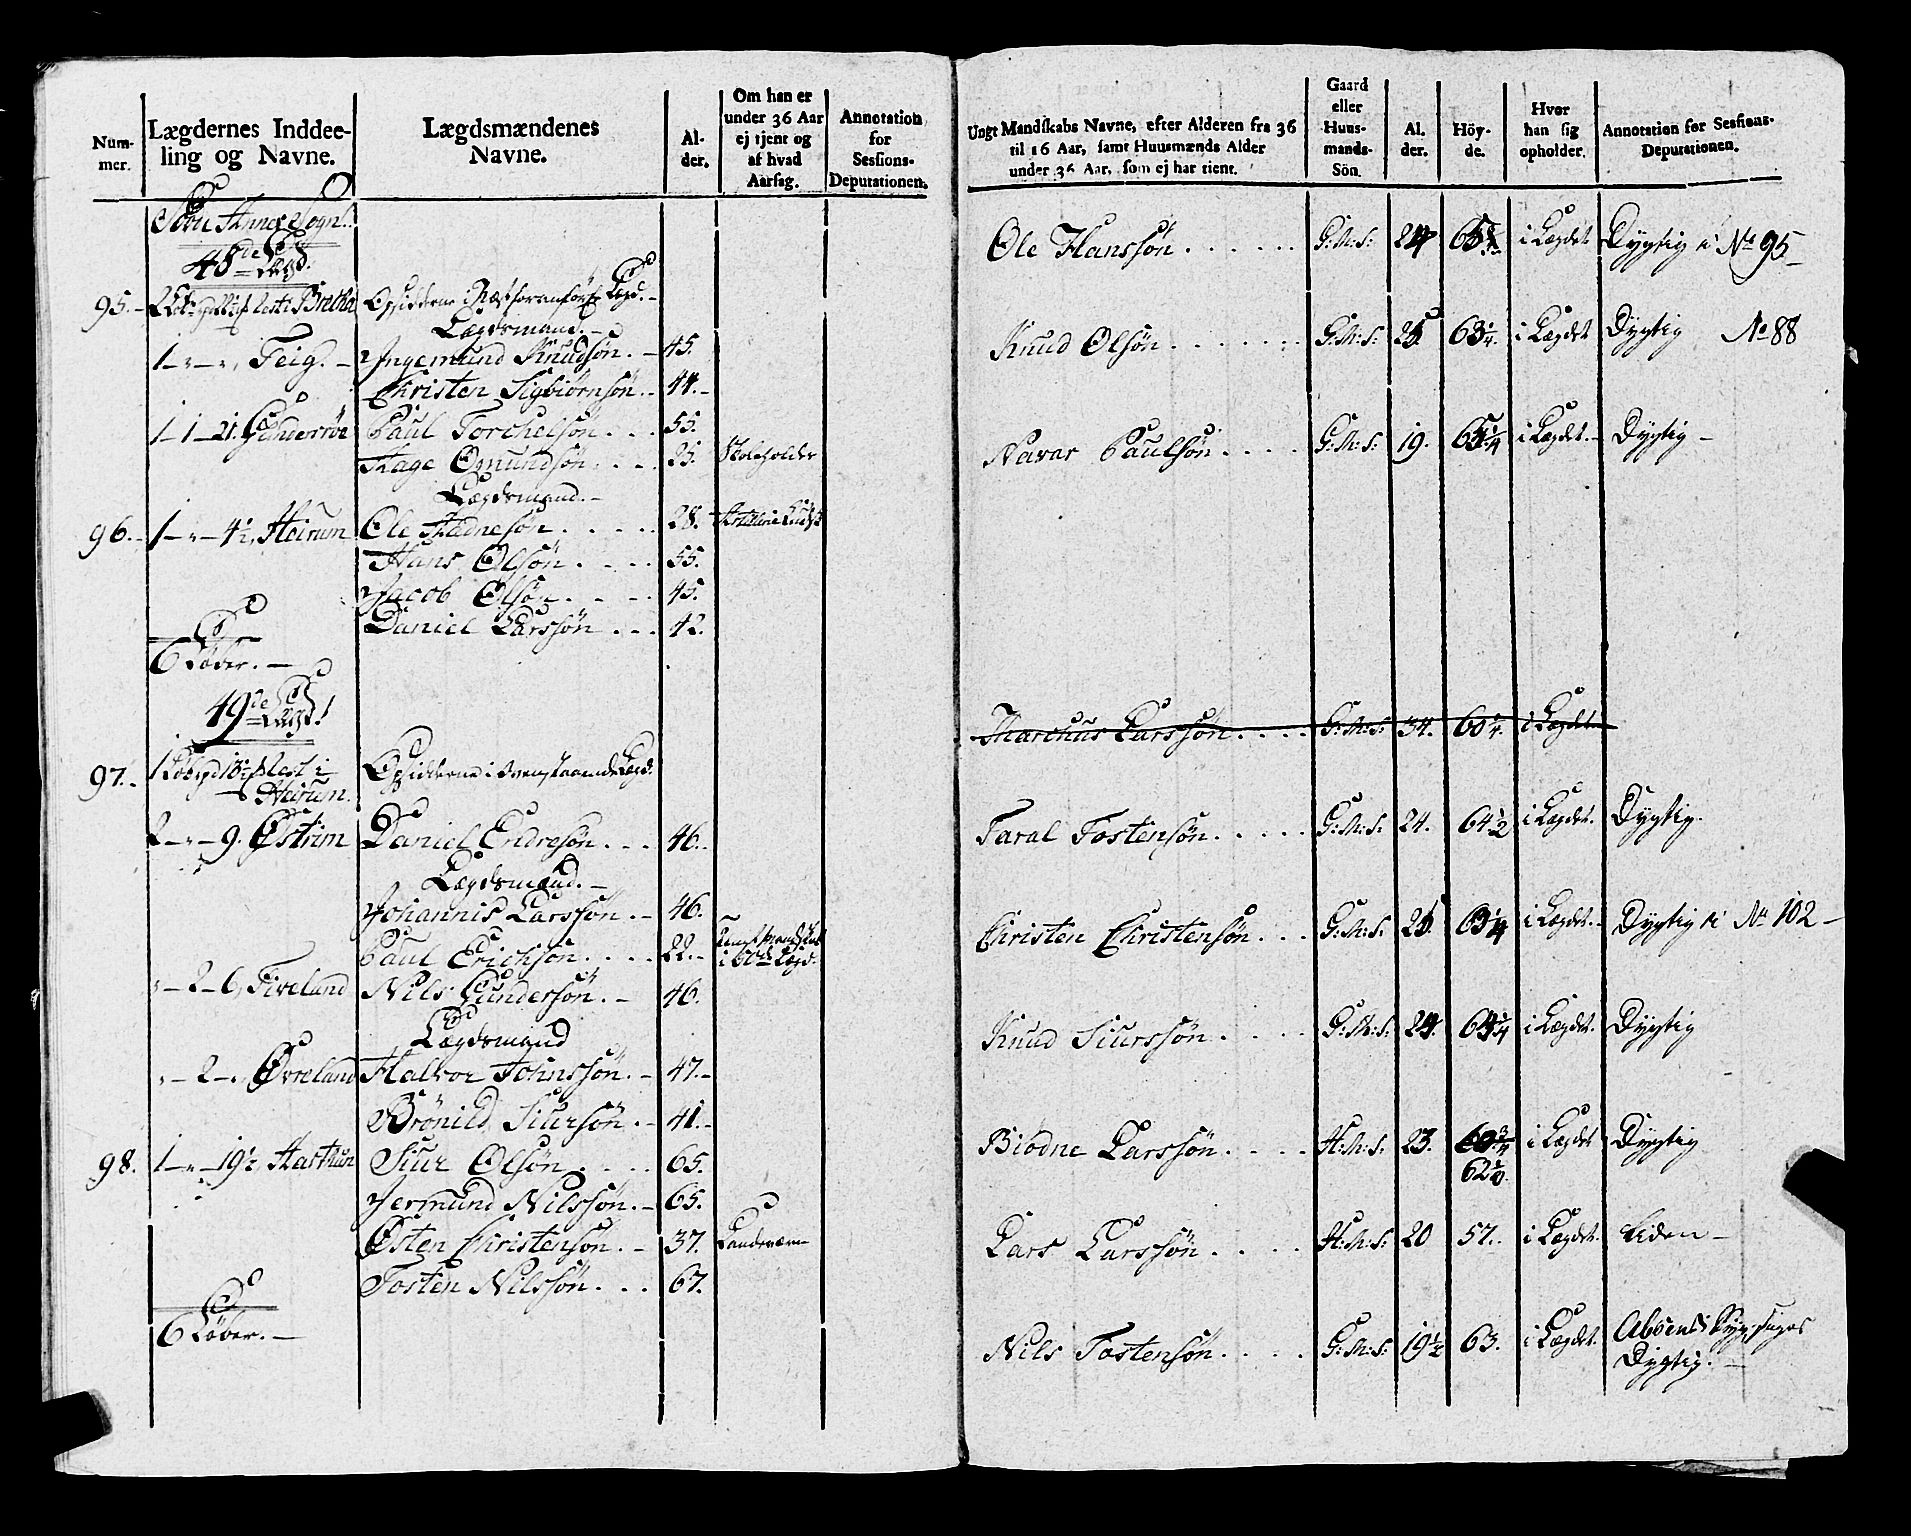 Num-
mer.
Lægdernes Inddee-
ling og Navne.
Lægdsmændenes
Navne.
Al-
der.
Om han er
under 36 Aar
ej tjent og
af hvad
Aarsag.
Annotation
for
Sessions-
Deputationen.
Sogn.
48de Lægd.
95.
Lægdsmand.
1 - " - " Teig. - Ingemund Knudsøn. - 45.
Christen Sigbiørnsøn. - 44.
1 - 1 - 21. Gunderröe Paul Torchelsøn . . . 55.
Aage Ogmundsøn . . . . 25.
Lægdsmand. -
96. 1 - " - 4½, Heirum Ole Hadnesøn . . . . . 28.
Hans Olsøn . . . . 55.
Jacob Olsøn . . . 45.
Daniel Larssøn . . . 42.
6 Løber. -
49de Lægd.
97.
Heirum.
2 - " - 9. Østrim Daniel Endresøn . . . 46.
Lægdsmand. -
Johannis Larssøn . - 46.
Paul Erichsøn . . . . 22. -
" - 2 - 6, Fiveland Nils Gundersøn. - 46.
Lægdsmand
" - 2 - " Øvreland Halvor Johnssøn. - 47. -
Brönild Siursøn . - 41. -
98. 1 - " - 19½ Aarthun Siur Olsøn . . . . 65.
Jermund Nilssøn. - 65.
Østen Christensøn . - 37. Landeværn
Tosten Nilssøn . . . 67.
6 Løber. -
Ungt Mandskabs Navne, efter Alderen fra 36
til 16 Aar, samt Huusmænds Alder
under 36 Aar, som ej har tient.
Gaard
eller
Huus-
mands-
Sön.
Al.
der.
Höy-
de.
Hvor
han sig
opholder.
Annotation for Sessions-
Deputationen.
Ole Hanssøn . . . . . . G:M:S: 24 i Lægdet Dygtig i No 95
Knud Olsøn . . . . . . . G:M:S: 25 63¼. i Lægdet Dygtig No 88
Navar Paulsøn . . . . G:M:S: 19. i Lægdet. - Dygtig -
Marchus Larssøn . . . . G:M:S: 34. 60¼. i Lægdet
Taral Tostensøn . . . . . G:M:S: 24. 64½ i Lægdet. Dygtig.
Christen Christensøn . . . G:M:S: 25. 63¼ i Lægdet. Dygtig i No 102 -
Knud Siurssøn . . . . G:M:S: 24. i Lægdet. Dygtig
Biodne Larssøn . . . . H:M:S: 23. 60¾ i Lægdet Dygtig
Lars Larssøn . . . . H:M:S: 20 57. i Lægdet. Liden -
Nils Tostensøn . . . . G:M:S: 19½ 63. i Lægdet. Absent
Dygtig. -